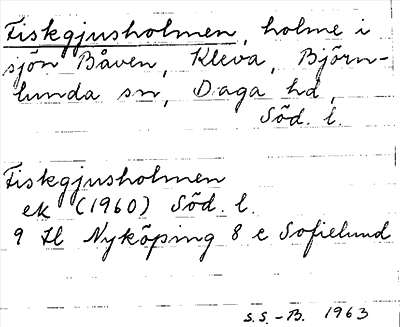 Fiskgjusholmen, holme i
sjön Båven, Kleva, Björn-
lunda sn, Daga hd,
Söd. l.
Fiskgjusholmen
ek (1960) Söd. l.
9 H Nyköping 8 c Sofielund
S.S.-B. 1963